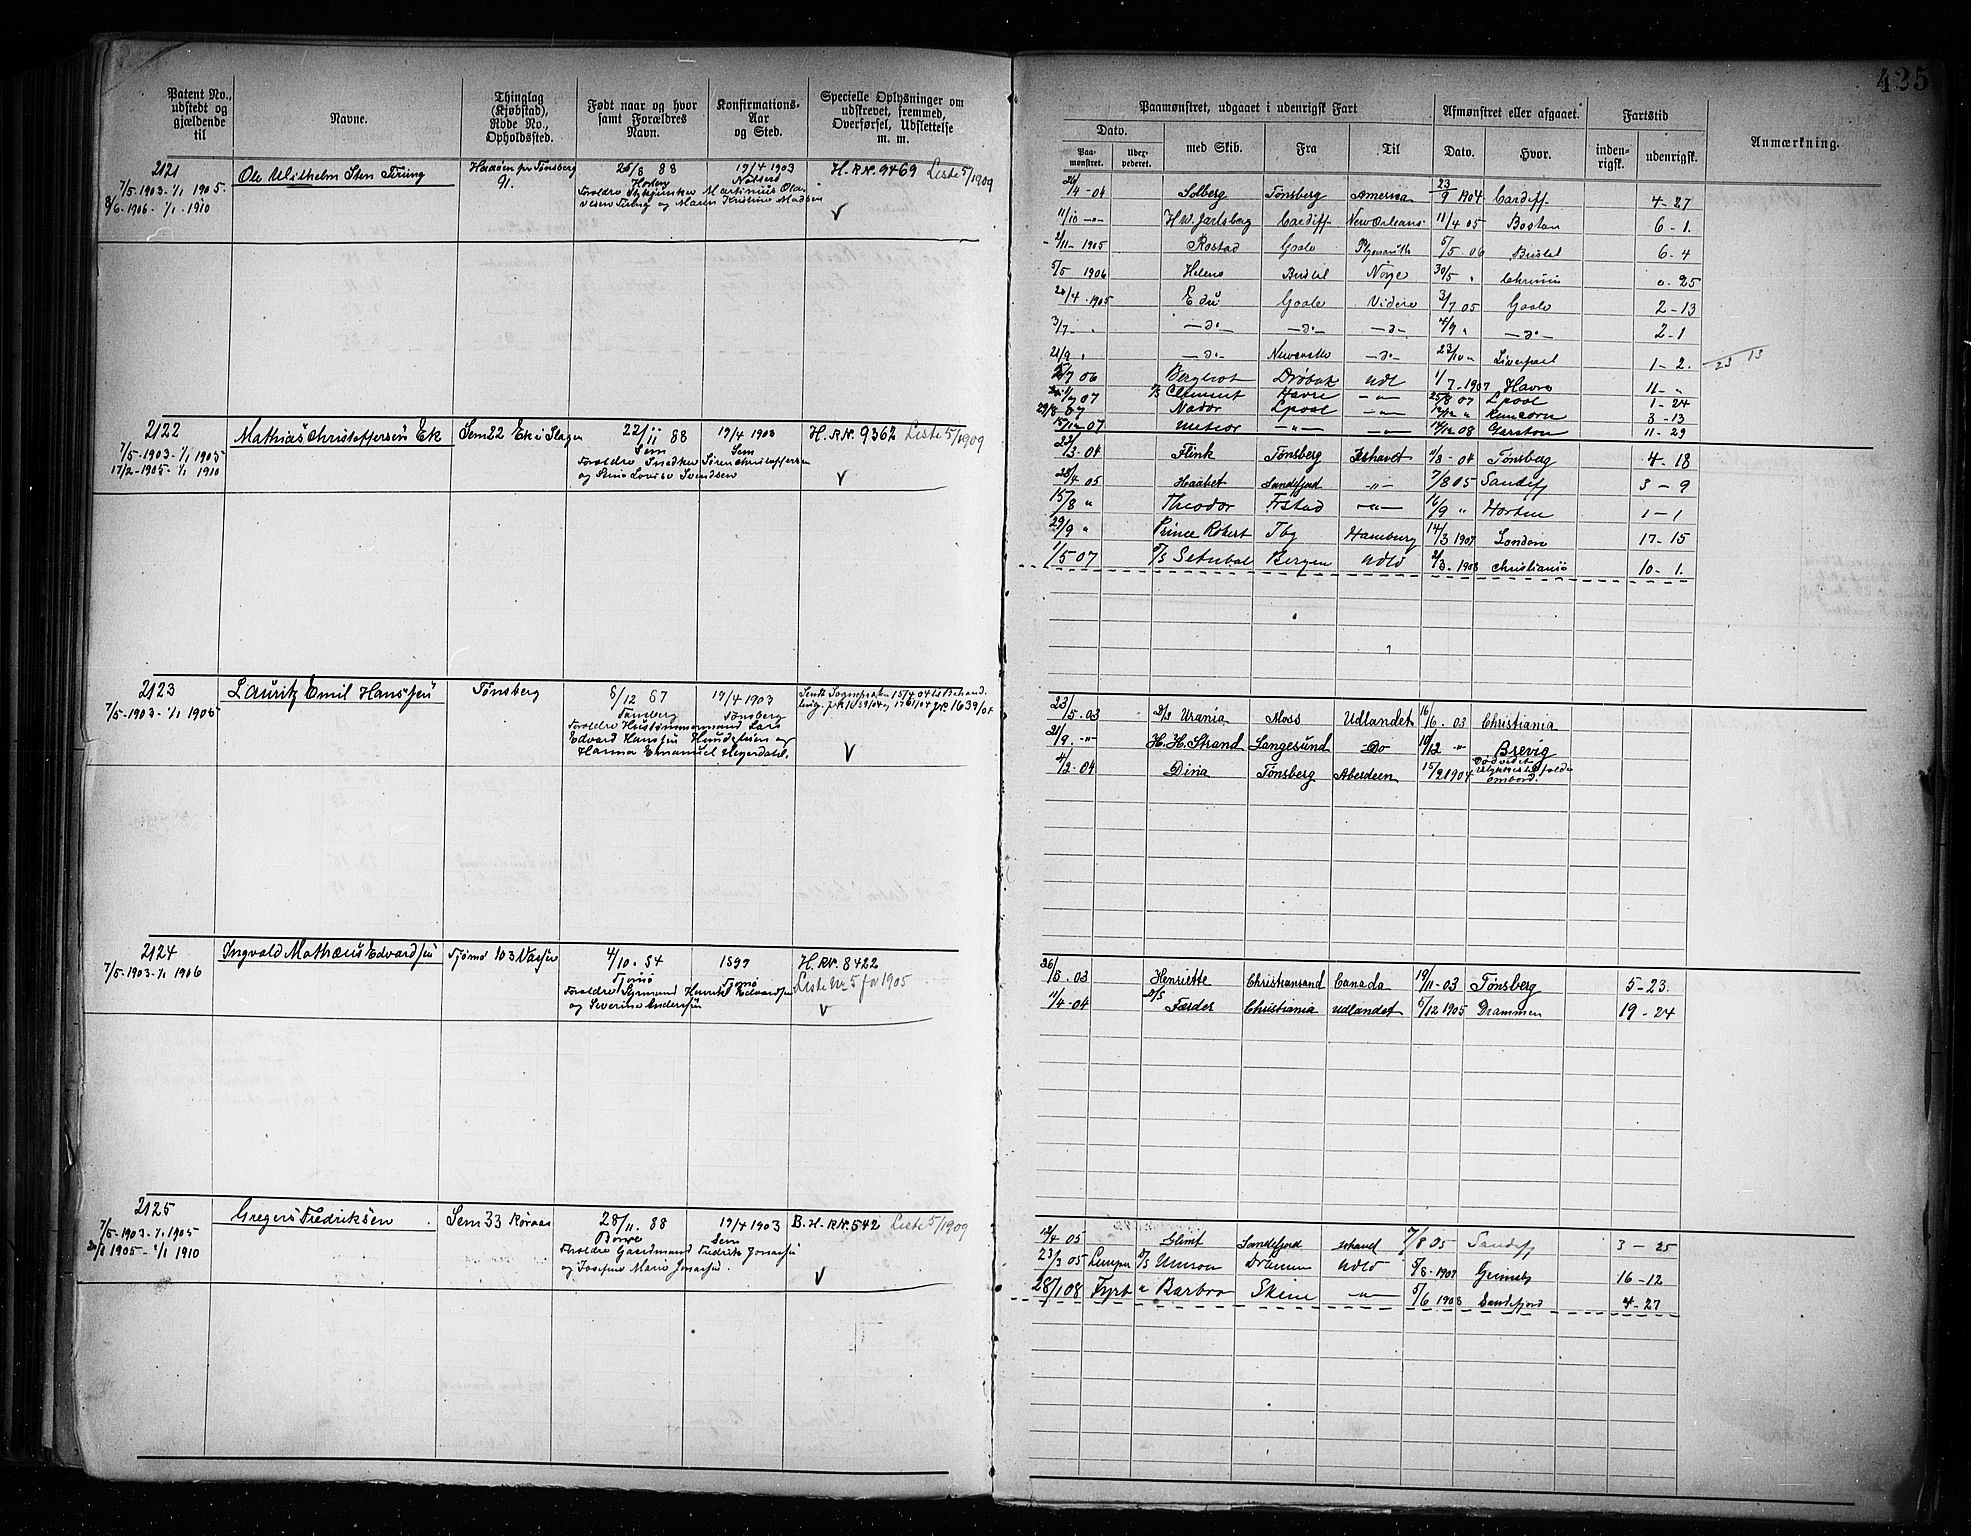 425
Patent No., udstedt og gjældende til
Navne.
Thinglag (Kjøbstad), Rode No., Opholdssted.
Født naar og hvor samt Forældres Navn.
Konfirmations-Aar og Sted.
Specielle Oplysninger om udskrevet, fremmed, Overførsel, Udslettelse m. m.
Paamønstret, udgaaet i udenrigsk Fart
Afmønstret eller afgaaet.
Fartstid
Anmærkning.
Dato.
Paa-mønstret.
med Skib.
Fra
Til
Dato.
Hvor.
inden-rigsk.
udenrigsk.
2121
7/5-1903-1/1 1905.
8/6-1906-1/1-1910
Ole Wilhelm Sten
Tønsberg
91.
26/8 88
19/4 1903
H.RN. 9469 Liste 5/1909
-04 Solberg Tønsberg America 23/9 1904 Cardiff 4-27
11/10 -"- H.W. Jarlsberg Cardiff New Orleans 11/4 05 Boston 6-1.
2/11-1905 Rostad Goole Plymouth 5/5-06 Bristol 6-4
5/5 1906 Helens Bristol Norge 30/5 " 0-25
20/4-1905 Goole Videre 3/7 05 Goole 2-13
3/7- -do- -do- -do- 4/9 " -do- 2-1
21/9 -do- Newcastle -do- Liverpool 1-2.
06 Bergliot Drøbak Udl 1/7-1907 Havre 11-"
07 S/S Clement Havre -"- 25/8 07 Lpool 1-24
29/8-07 Nador Lpool -"- Runcorn 3-13
07 Meteor -"- -"- 08 Garston 11-29
2122
7/5-1903-1/1 1905
17/2-1905-1/1 1910
Mathias Christoffersen Ek
Sem 22 Ek i Slagen
22/11 88
Sem
Forældre Snedker Søren Christoffersen
og Lovise Svendsen
19/4 1903
Sem
H.RN. 9362 Liste 5/1909
-04 Flink Tønsberg Ishavet 1/8-04 Tønsberg 4-18
28/4 05 Haabet Sandefjord -"- 7/8 05 Sandefj 3-9
15/8 " Theodor Fstad -"- 16/9 " Horten 1-1
29/9 " Prince Robert Tbg Hamburg 14/3 1907 London 17-15
1/5 07 S/S Setubal Bergen Udld 2/3-1908 Christiania 10-1.
2123
7/5-1903-1/1 1905
Lauritz Emil Hanssen
Tønsberg
6/12 87
Tønsberg
Forældre Hustømmermand Lars
Edvard Hanssen
Hanna Emanuel Heyerdahl.
19/4 1903
Tønsberg
23/5-03 D/S Urania Moss Udlandet 16/6-03 Christiania
21/9.-"- H.H. Strand Langesund Do 19/12 " Brevig
4/2-04 Dina Tønsberg Aberdeen 15/2 1904 ombord.
2124
7/5-1903-1/1 1906
Ingvald Mathæus Edvardsen
Tjømø 103
4/10-84
Tjømø
Forældre Sømand Henrik Edvardsen
og Severine Andersen
1899
Tjømø
H.RN. 8422
Liste Nr 5 for 1905
26/5-03 Henriette Christiansand Canada 19/11-03 Tønsberg 5-23.
11/4-04 D/S Færder Christiania udlandet 5/12 1905 Drammen 19-24
2125
7/5-1903-1/1 1905
1905-1/1 1910
Gregers Fredriksen
Sem 33 Roraas
28/11.88
Borre
Forældre Gaardmand Fredrik Jonassen
og Josefine Marie Jonassen.
19/4 1903
Sem
B.H.RN. 542 Liste 5/1909
05 Glimt Sandefjord ishavet 7/8 05 Sandefj 3-25
05 Lemper D/S Unison Drammen Udld 5/8-1907 Grimsby 16-12
28/1 08 Fyrb " Barbro Skien -"- 5/6 1908 Sandefjord 4-27